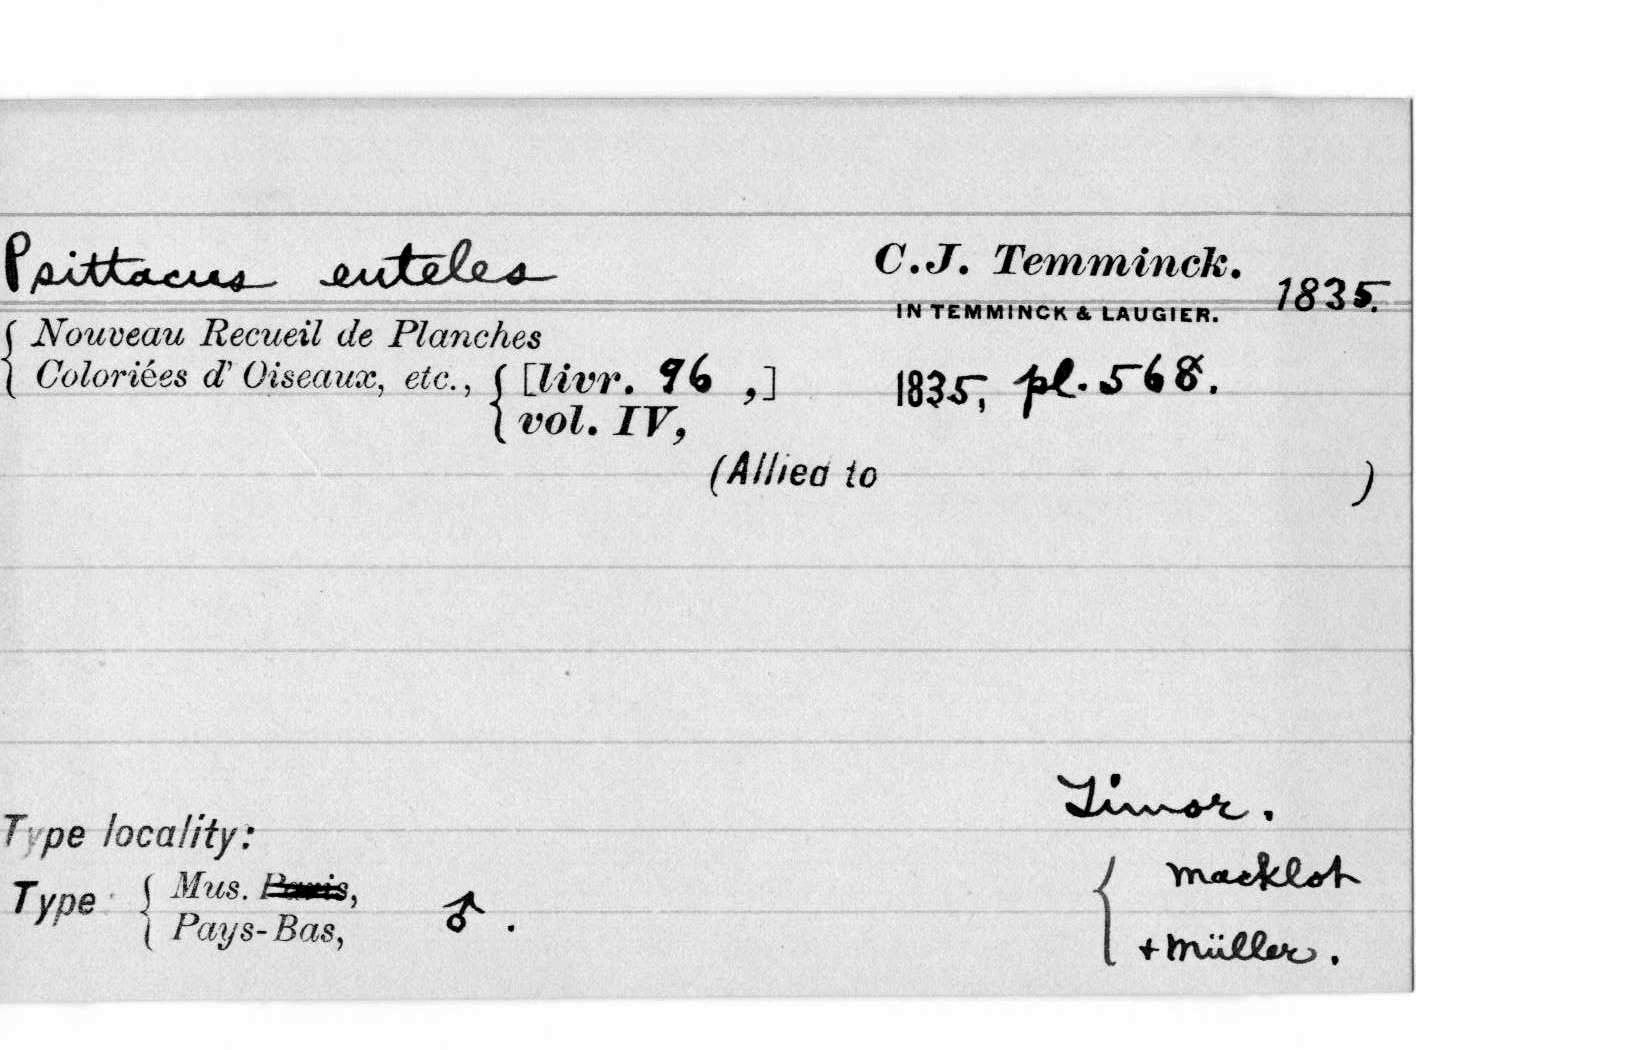 Psittacus euteles C.J. Temminck.
IN TEMMINCK & LAUGIER. 1835.
Nouveau Recueil de Planches
Coloriées d' Oiseaux, etc., [livr. 96 ,] 1835, pl. 568.
vol. IV,
(Allied to )
Timor.
Type locality:
Type Mus. Paris, ♂. Macklot
Pays-Bas, + Müller.